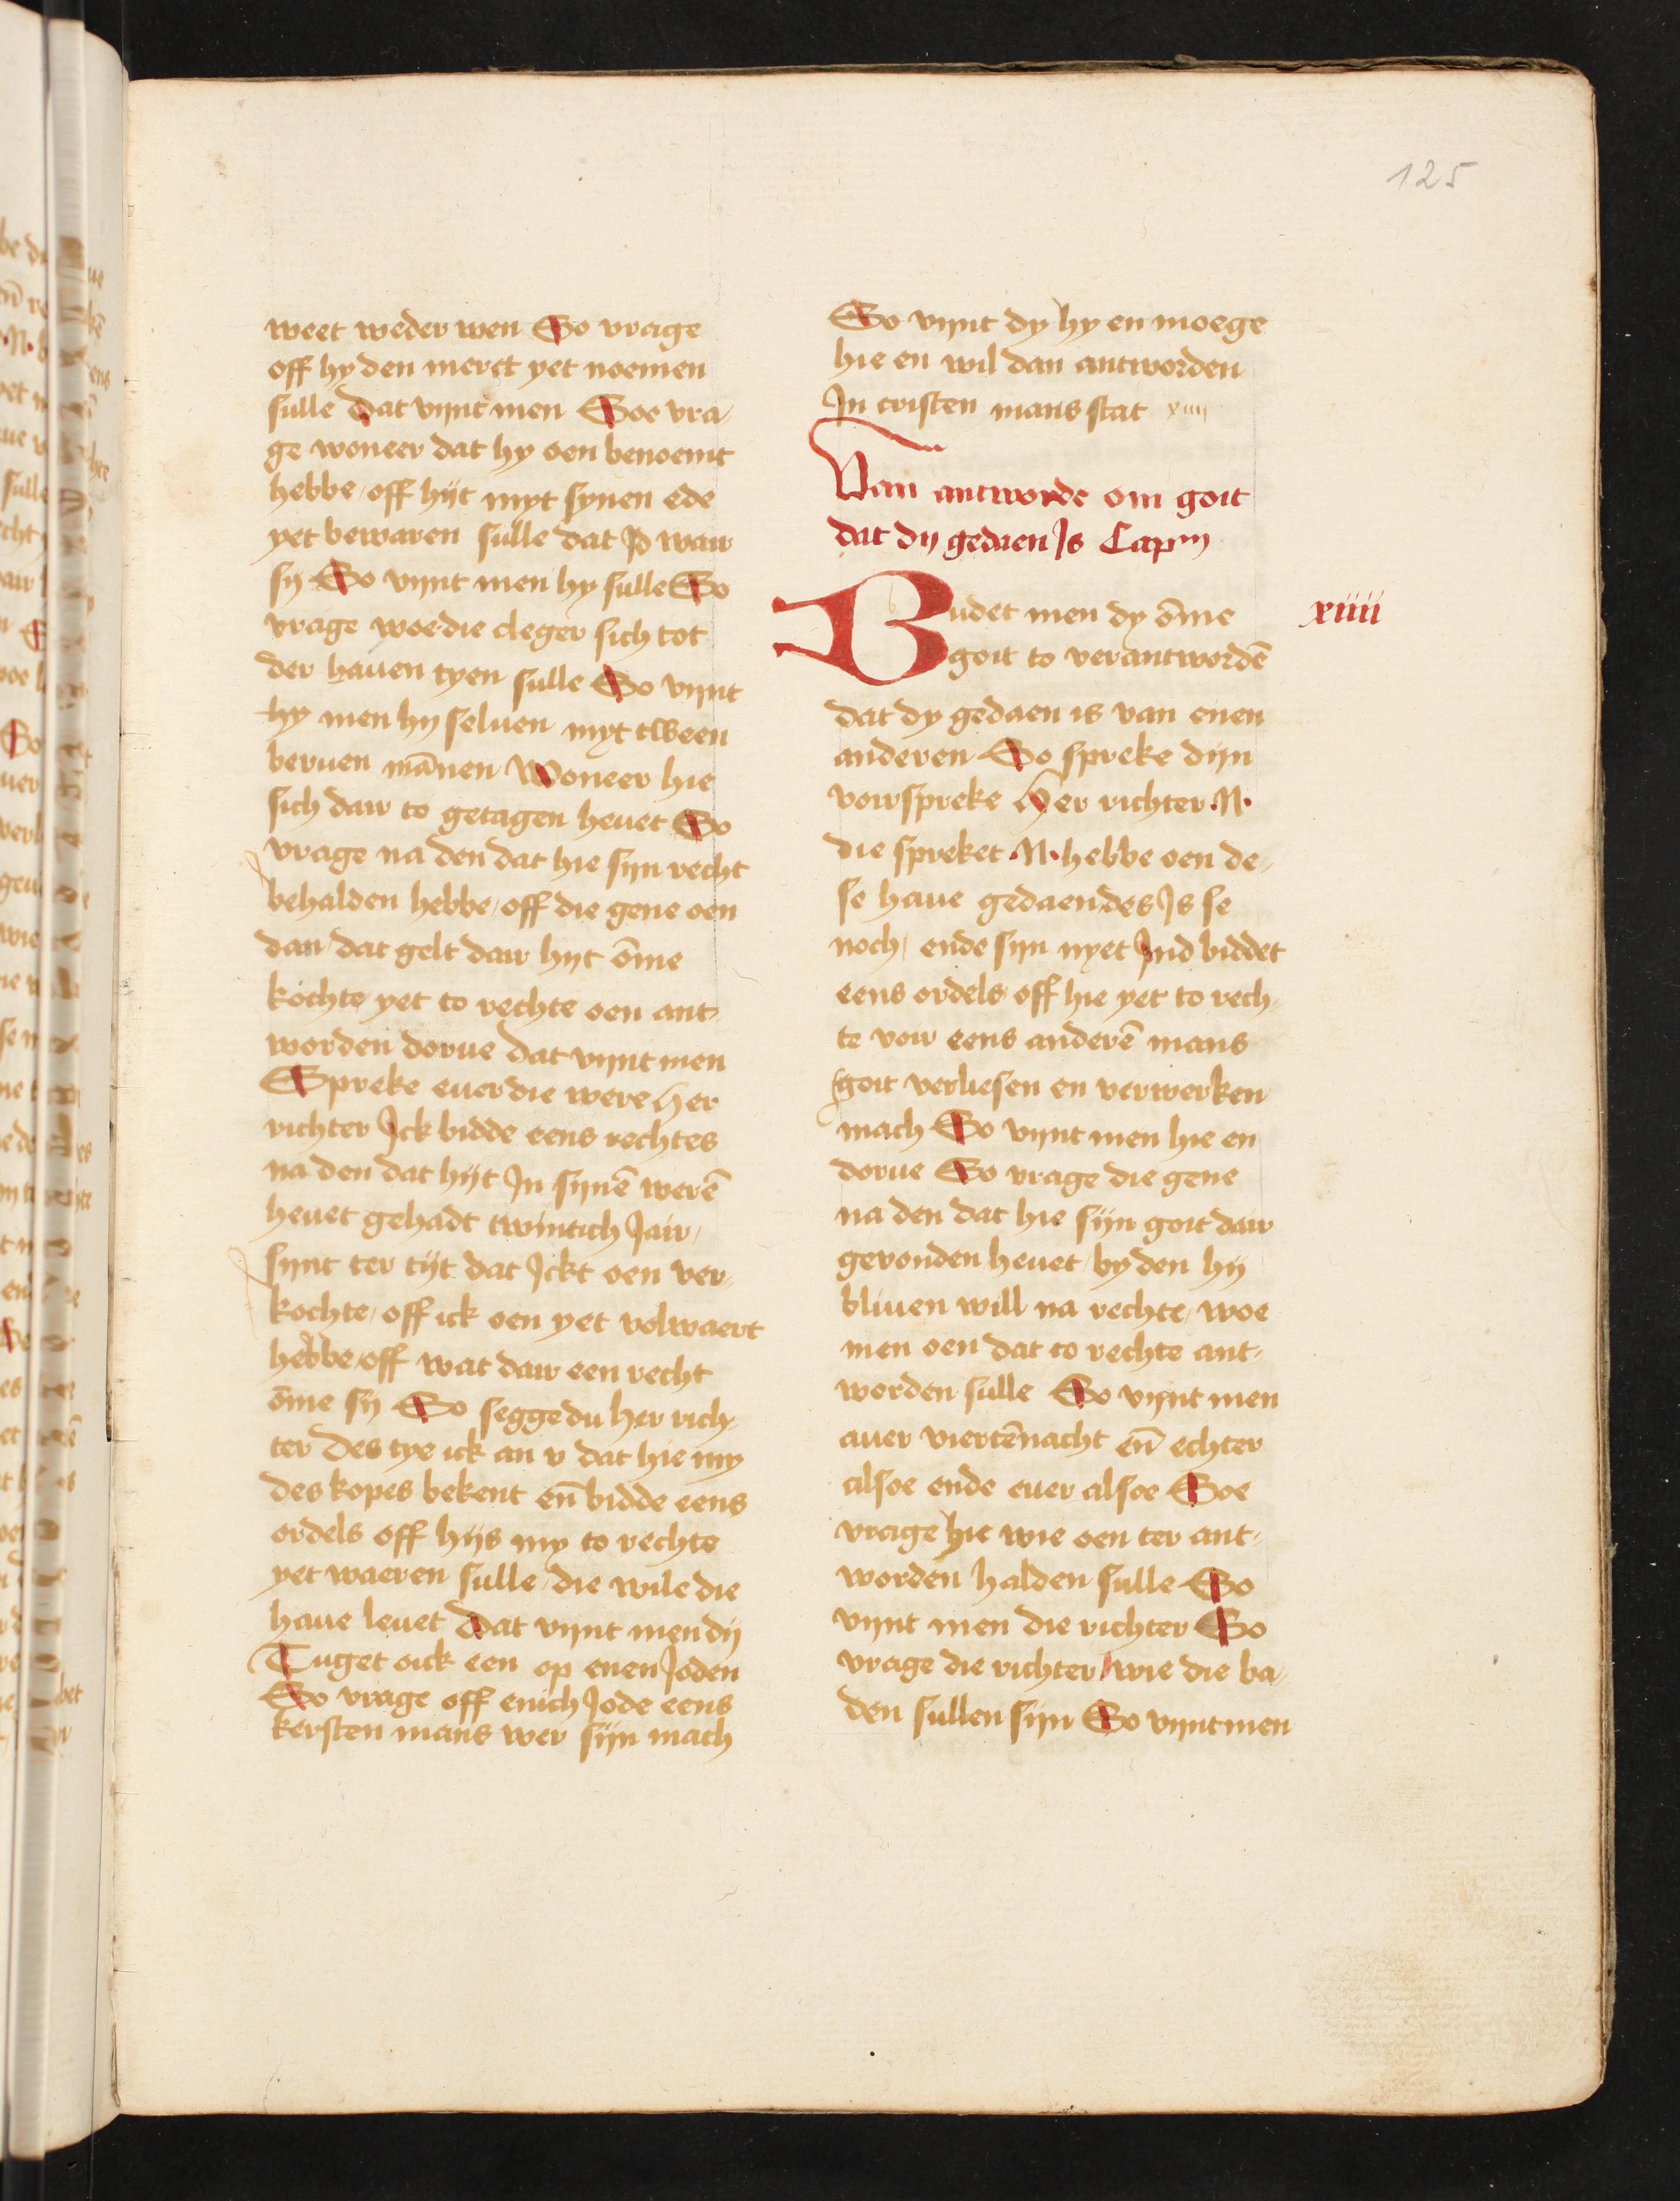 125
weet weder wen So vrage
off hy den merct yet noemen
sulle dat vijnt men Soe vra-
ge woneer dat hy oen benoemt
hebbe / off hijt myt synen ede
yet bewaren sulle dat Jd wair
sij So vijnt men hy sulle So
vrage woe die cleger sich tot
der hauen tyen sulle So vijnt
hy men hij seluen myt tween
beruen mānen Woneer hie
sich dair to getagen heuet So
vrage na den dat hie sijn recht
behalden hebbe / off die gene oen
dan dat gelt dair hijt ōme
kochte yet to rechte oen ant-
worden dorue dat vijnt men
Spreke euer die were her
richter Jck bidde eens rechtes
na den dat hijt Jn sijnē werē
heuet gehadt twintich Jair /
sijnt ter tijt dat Jckt oen ver-
kochte / off ick oen yet volwaert
hebbe / off wat dair een recht
ōme sij So segge du her rich-
ter des tye ick an v dat hie my
des kopes bekent en̄ bidde eens
ordels off hijs my to rechte
yet waeren sulle / die wile die
haue leuet dat vijnt men dij
Tuget oick een op enen Joden
So vrage off enich Jode eens
kersten mans wer sijn mach
So vijnt dy hy en moege
hie en wil dan antworden
Jn cristen mans stat xiiij
Van antworde om goit
dat dij gedaen Js Capm
Budet men dy ōme
goit to verantwordē
xiiii
dat dy gedaen is van enen
anderen So spreke dijn
voirspreke Her richter .N.
die spreket .N. hebbe oen de-
se haue gedaen des Js se
noch / ende sijn nyet Jnd biddet
eens ordels off hie yet to rech-
te voir eens anderē mans
goit verliesen en verwerken
mach So vijnt men hie en
dorue So vrage die gene
na den dat hie sijn goit dair
gevonden heuet / by den hij
bliuen will na rechte / woe
men oen dat to rechte ant-
worden sulle So vijnt men
auer viertēnacht en̄ echter
alsoe ende euer alsoe Soe
vrage hie wie oen ter ant-
worden halden sulle So
vijnt men die richter So
vrage die richter / wie die ba-
den sullen sijn So vijnt men